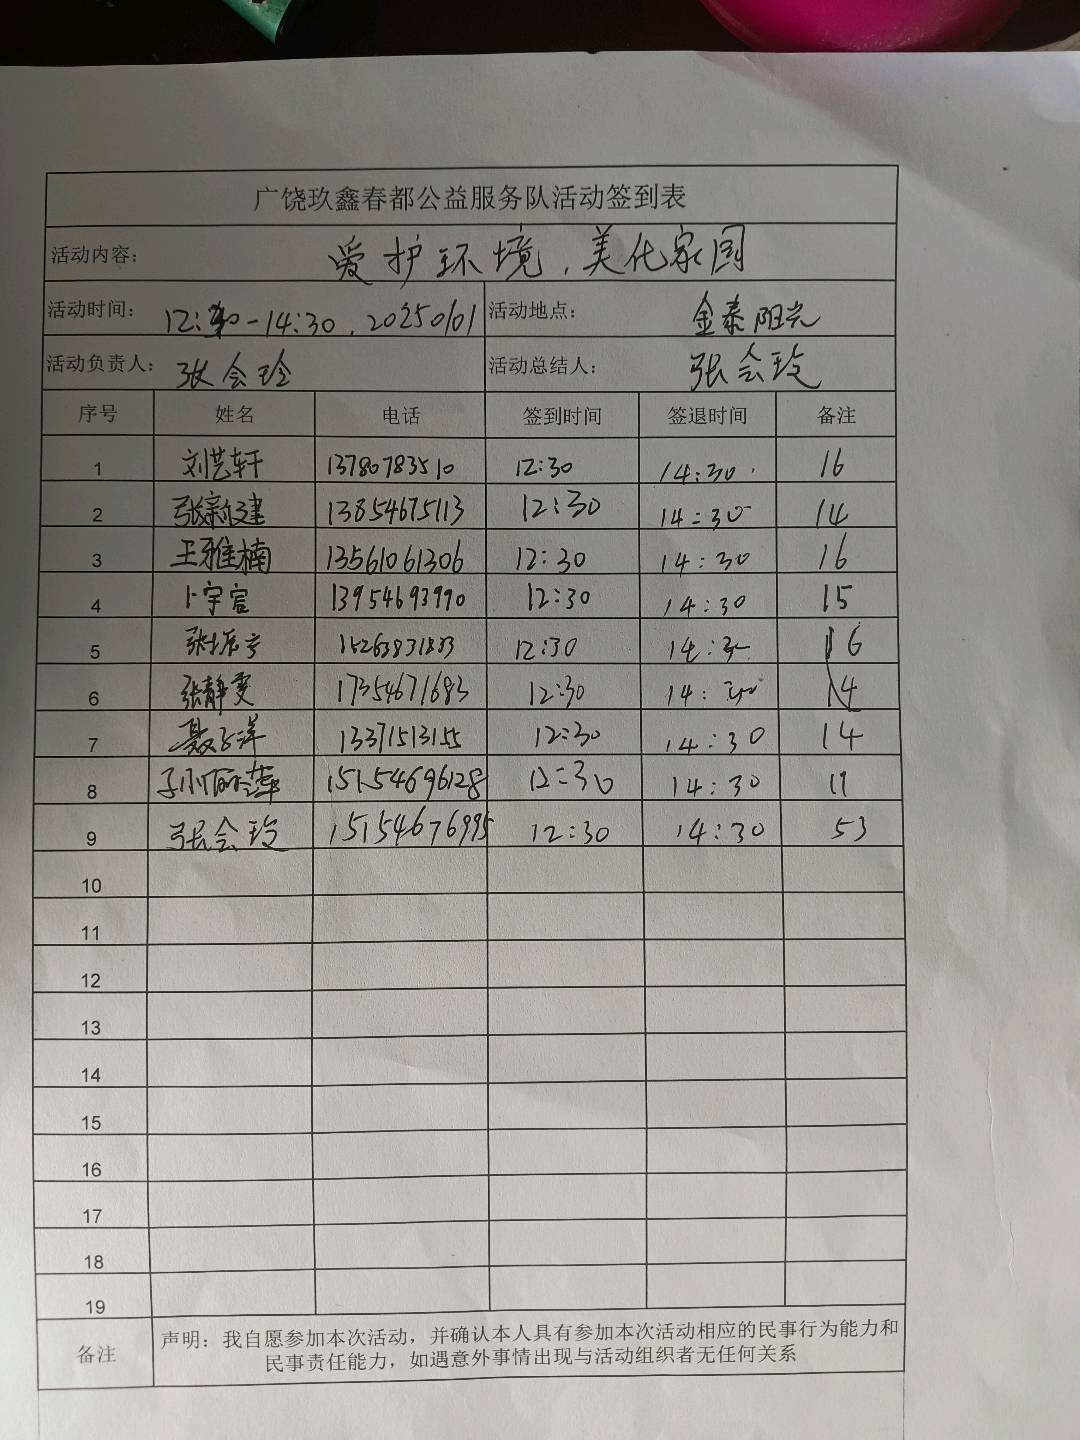 广饶玖鑫春都公益服务队活动签到表
活动内容： 爱护环境，美化家园
活动时间： 12:30-14:30，20250101 活动地点： 金泰阳光
活动负责人： 张会玲 活动总结人： 张会玲
序号 姓名 电话 签到时间 签退时间 备注
1 刘艺轩 13780783510 12:30 14:30 16
2 张新建 13854675113 12:30 14:30 14
3 王雅楠 13561061306 12:30 14:30 16
4 卜宇宸 13954693990 12:30 14:30 15
5 12:30 14:30 16
6 张静雯 17354671683 12:30 14:30 14
7 聂子洋 13371513155 12:30 14:30 14
8 15154696128 12:30 14:30 11
9 张会玲 15154676995 12:30 14:30 53
10
11
12
13
14
15
16
17
18
19
备注 声明：我自愿参加本次活动，并确认本人具有参加本次活动相应的民事行为能力和
民事责任能力，如遇意外事情出现与活动组织者无任何关系